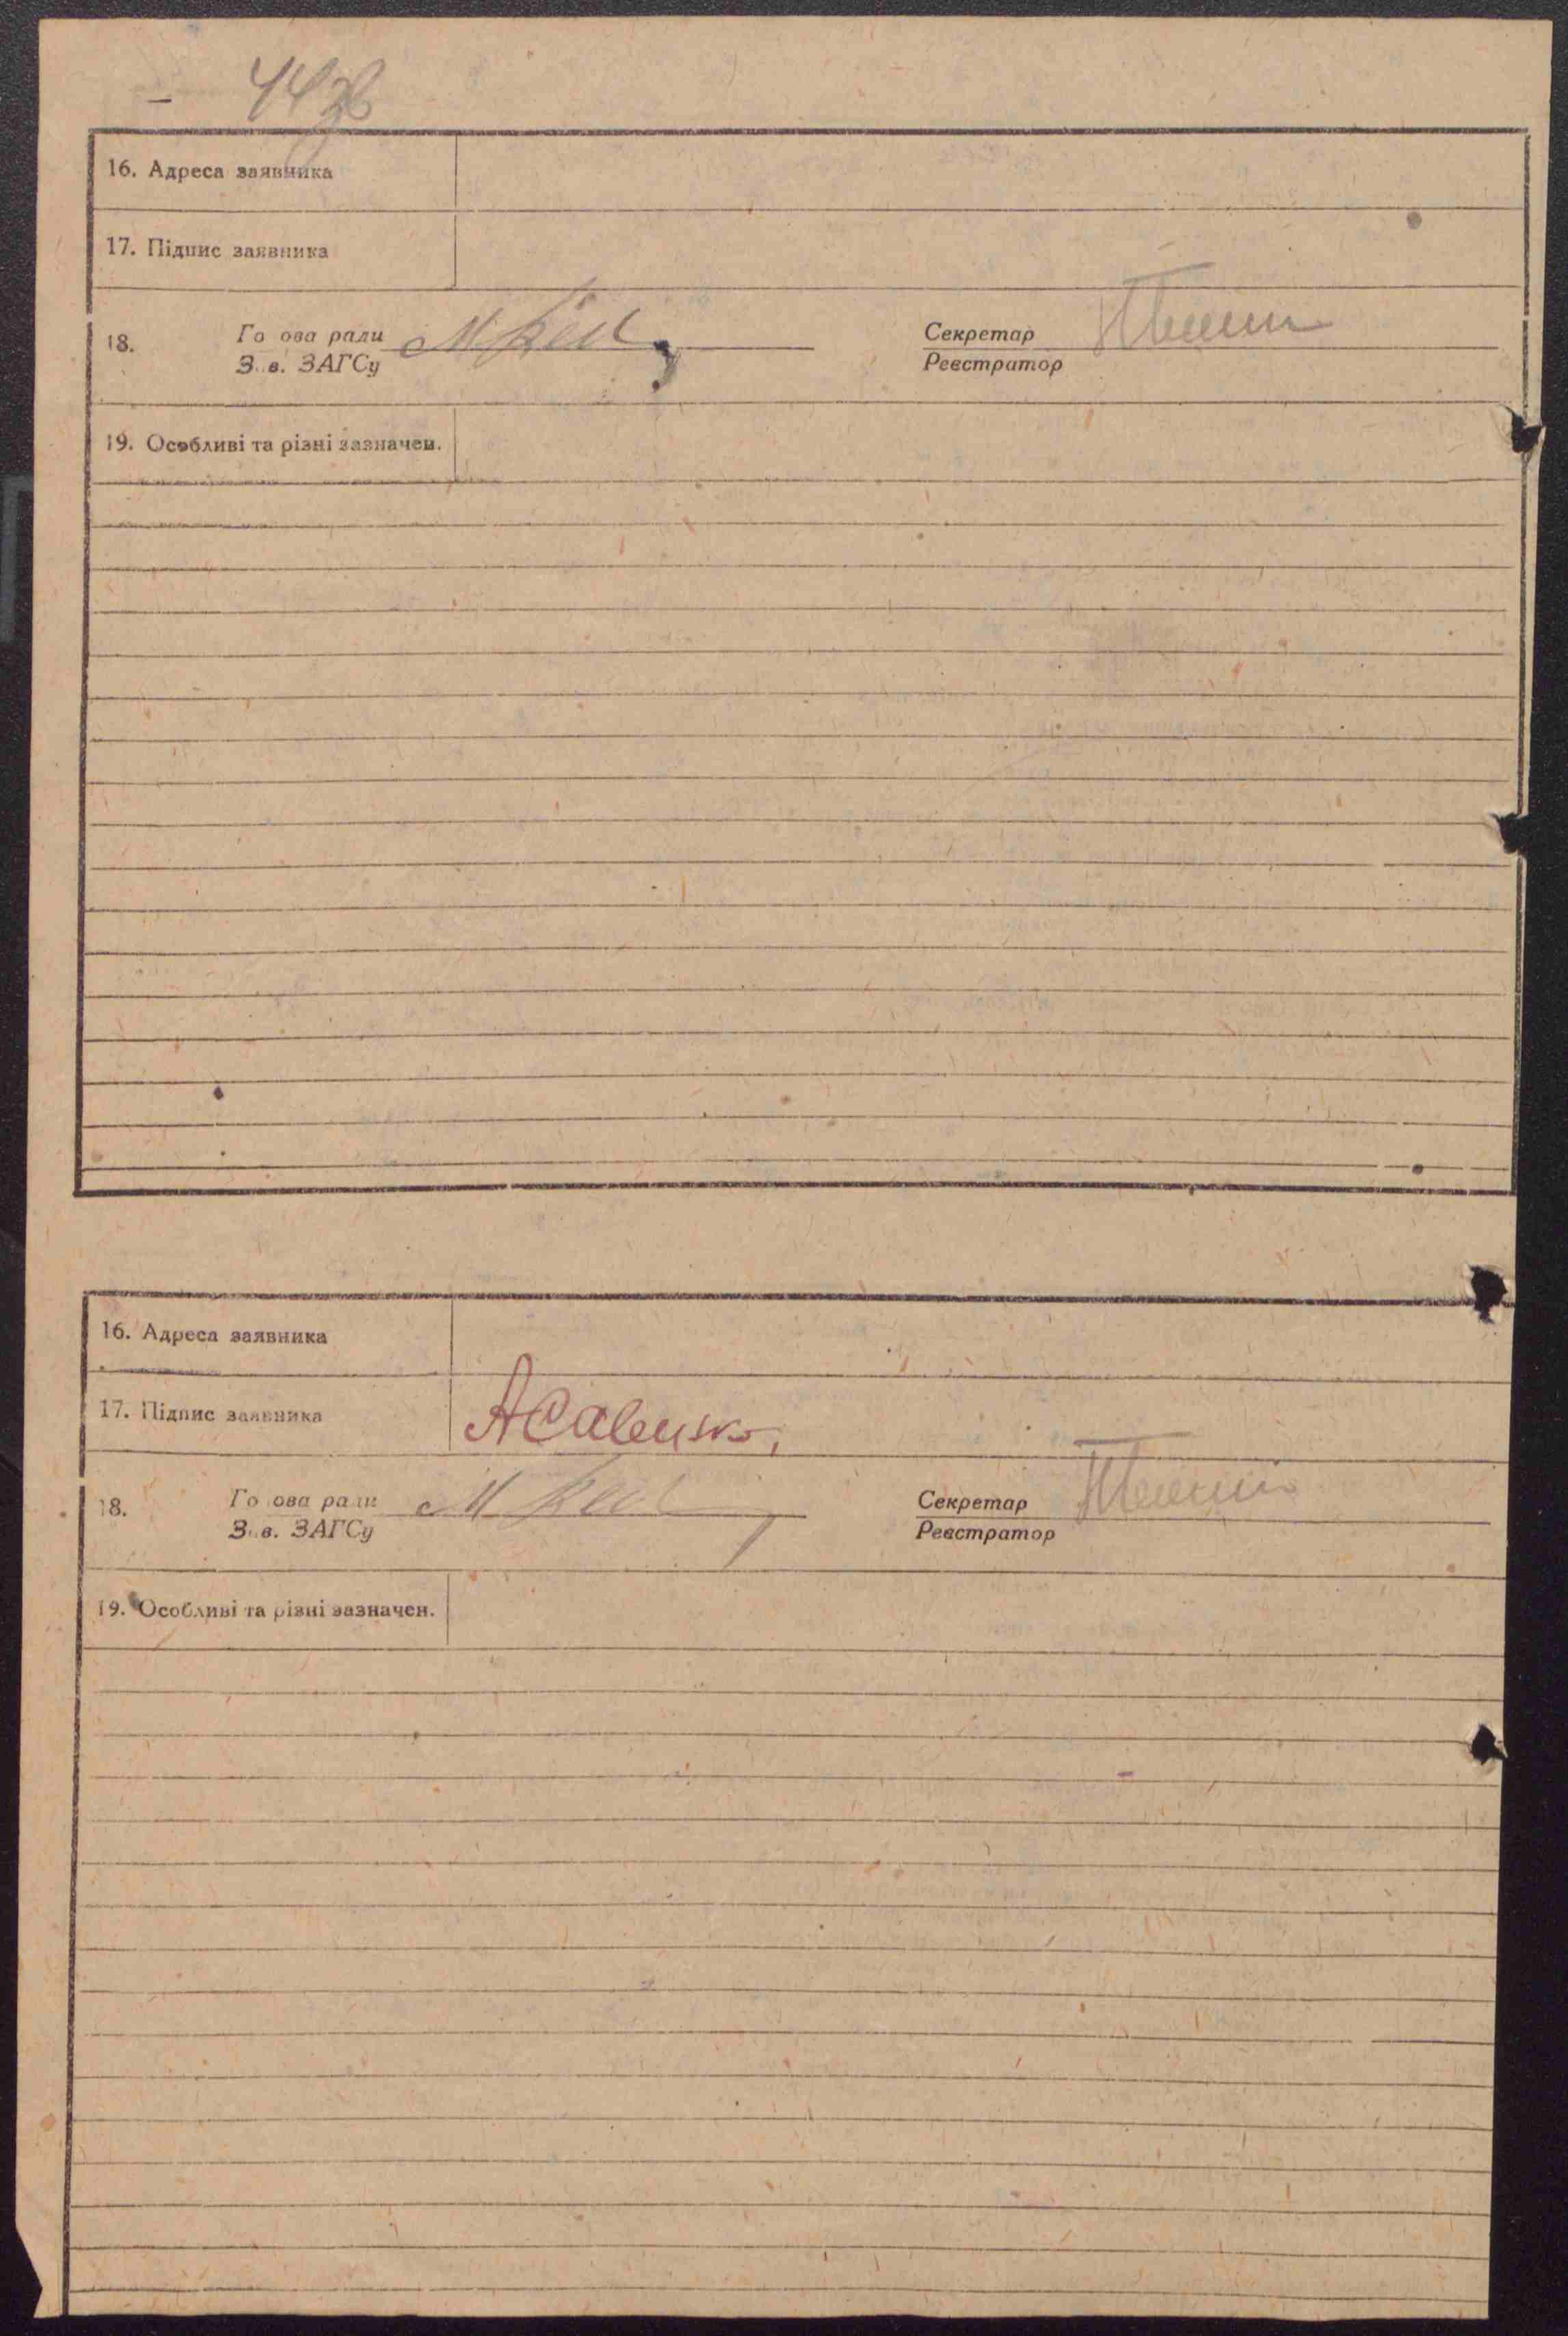 16. Адреса заявника
17. Підпис заявника
18. Голова ради Секретар
Зав. ЗАГСу Реєстратор
19. Особливі та різні зазначен.
16. Адреса заявника
17. Підпис заявника АСавенко
18. Голова ради Секретар
Зав. ЗАГСу Реєстратор
19. Особливі та різні зазначен.